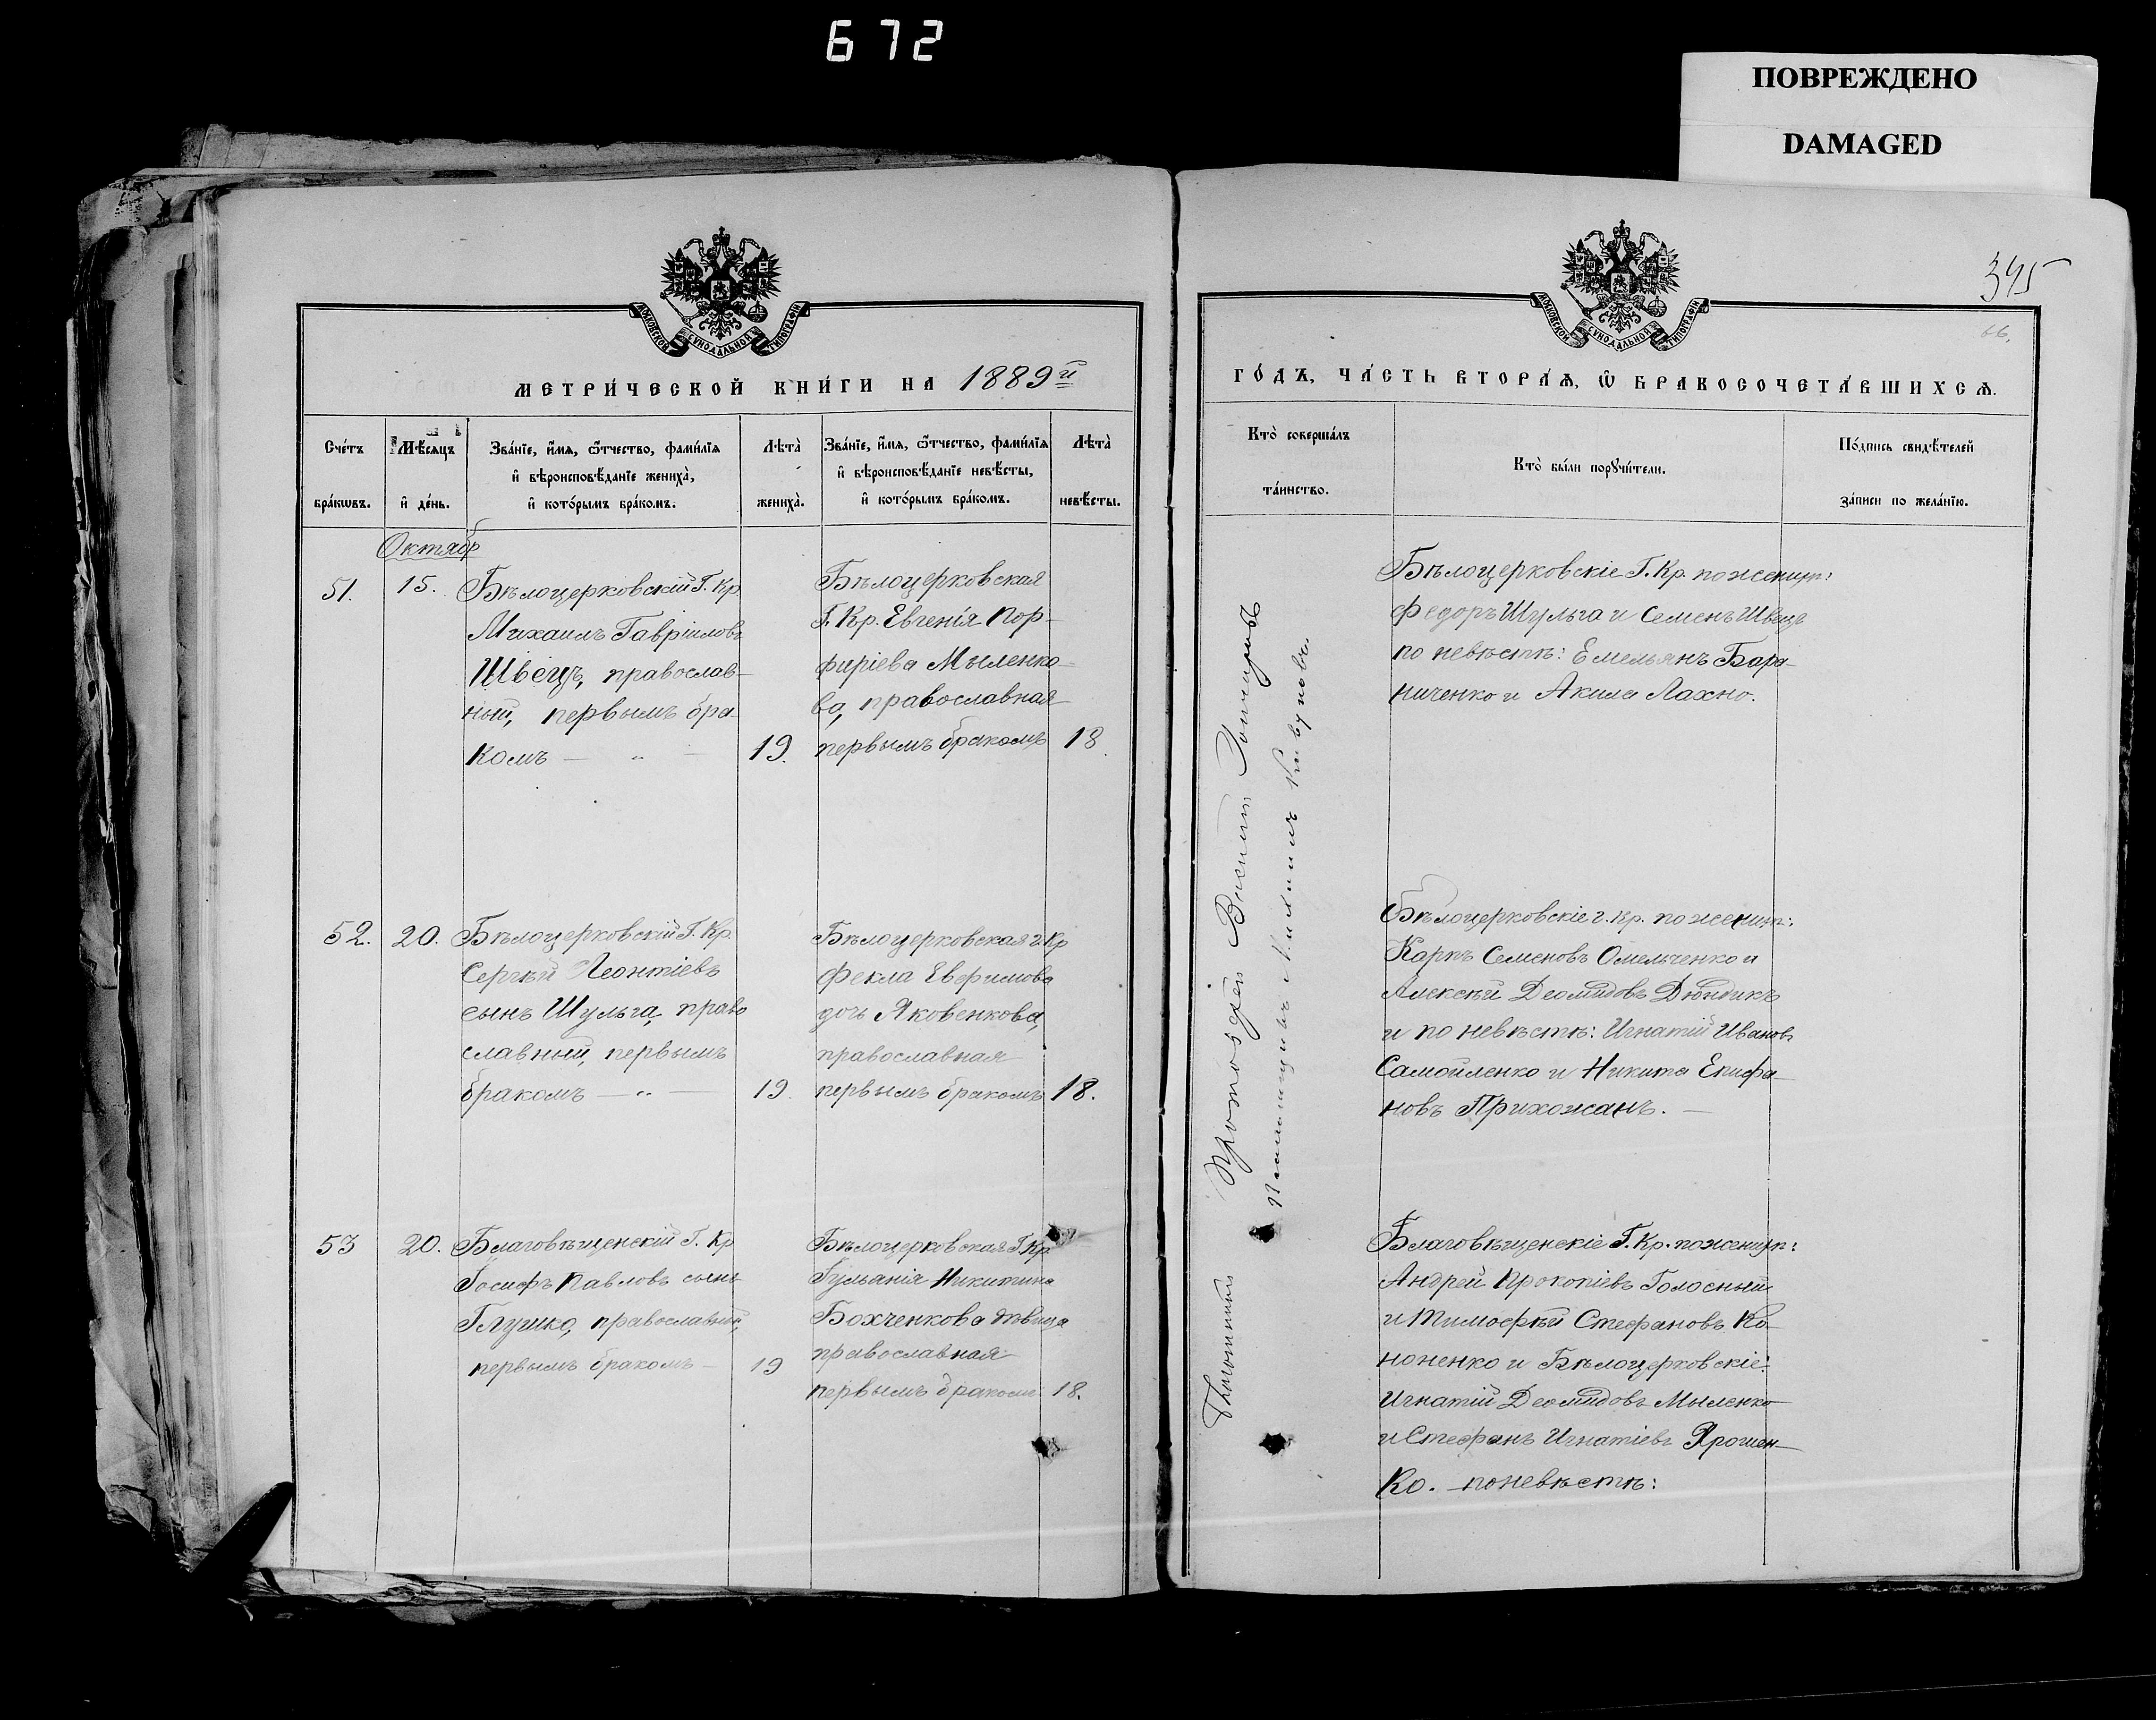 672
ПОВРЕЖДЕНО
DAMAGED
МОСКОВСКОЙ СѴНОДАЛЬНОЙ ТИПОГРАФІИ
МЕТРИ́ЧЕСКОЙ КНИ́ГИ НА 1889й
Сче́тъ бра́кѡвъ.
Мѣ́сяцъ и҆ де́нь.
Зва́нїе, и҆́мѧ, ѻ҆́тчество, фамѝлїѧ
и҆ вѣроисповѣ́данїе жениха̀,
и҆ кото́рымъ бра́комъ.
Лѣта̀ жениха̀.
Зва́нїе, и҆́мѧ, ѻ҆́тчество, фами́лїѧ
и҆ вѣроисповѣ́данїе невѣ́сты,
и҆ кото́рымъ бра́комъ.
Лѣта̀ невѣ́сты.
Октябр
51.
15.
Бѣлоцерковскій Г. Кр.
Михаилъ Гавріиловъ
Швецъ, православ-
ный, первымъ бра-
комъ — „ —
19.
Бѣлоцерковская
Г. Кр. Евгенія Пор-
фиріева Мыленко-
ва, православная
первымъ бракомъ
18.
52.
20.
Бѣлоцерковскій Г. Кр.
Сергѣй Леонтіевъ
сынъ Шульга, право
славный, первымъ
бракомъ — „ —
19.
Бѣлоцерковская г. Кр
Фекла Евфимова
дочь Яковенкова,
православная
первымъ бракомъ
18.
53
20.
Благовѣщенскій Г. Кр
Іосифъ Павловъ сынъ
Глушко, православный,
первымъ бракомъ —
19
Бѣлоцерковская Г. Кр.
Іуліанія Никитина
Бохченкова дѣвица
православная
первымъ бракомъ
18.
345
66.
МОСКОВСКОЙ СѴНОДАЛЬНОЙ ТИПОГРАФІИ
ГО́ДЪ, ЧА́СТЬ ВТОРА́Ѧ, Ѡ҆ БРАКОСОЧЕТА́ВШИХСѦ.
Кто̀ соверша́лъ
та́инство.
Кто̀ бы́ли порꙋчи́тели.
По́дпись свидѣ́телей
за́писи по жела́нїю.
Протоіерей Василій
Псаломщикъ
Бѣлоцерковскіе Г. Кр. по жених:
Федоръ Шульга и Семенъ Швецъ
по невѣстѣ: Емельянъ Бара-
ниченко и Акила Лахно.
Бѣлоцерковскіе г. Кр. по жених:
Карпъ Семеновъ Омельченко и
Алексѣй Деомидовъ Дюндикъ
и по невѣстѣ: Игнатій Ивановъ
Самойленко и Никита Епифа-
новъ Прихожанъ. —
Благовѣщенскіе Г. Кр. по жених:
Андрей Прокопіевъ Голосный
и Тимофѣй Стефановъ Ко-
ноненко и Бѣлоцерковскіе:
Игнатій Деомидовъ Мыленко
и Стефанъ Игнатіевъ Ярошен-
ко. — по невѣстѣ: